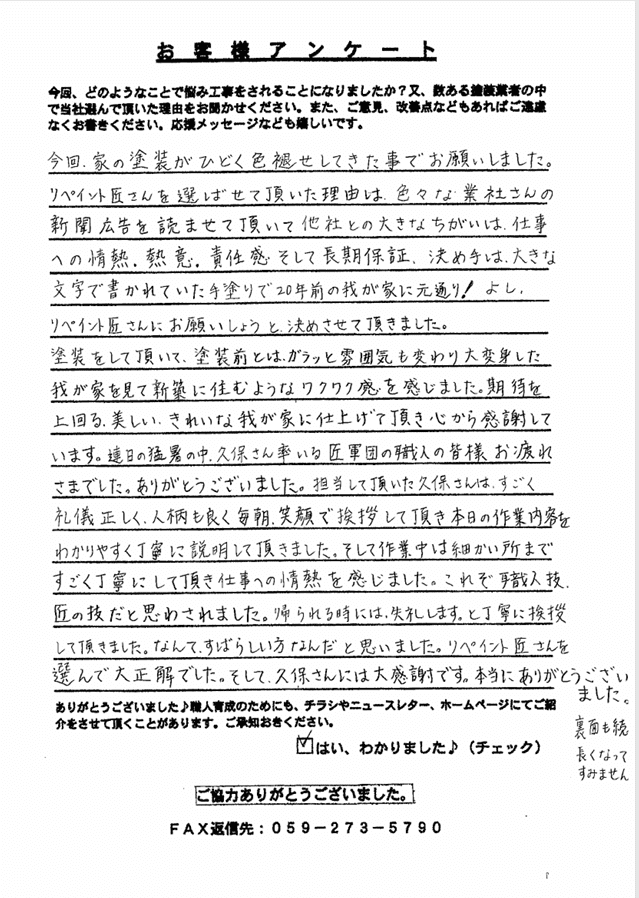 お客様アンケート
今回、どのようなことで悩み工事をされることになりましたか？又、数ある塗装業者の中
で当社選んで頂いた理由をお聞かせください。また、ご意見、改善点などもあればご遠慮
なくお書きください。応援メッセージなども嬉しいです。
今回、家の塗装がひどく色褪せしてきた事でお願いしました。
リペイント匠さんを選ばせて頂いた理由は、色々な業社さんの
新聞広告を読ませて頂いて他社との大きなちがいは、仕事
への情熱．熱意．責任感そして長期保証、決め手は、大きな
文字で書かれていた手塗りで20年前の我が家に元通り！よし、
リペイント匠さんにお願いしようと、決めさせて頂きました。
塗装をして頂いて、塗装前とは、ガラッと雰囲気も変わり大変身した
我が家を見て新築に住むようなワクワク感を感じました。期待を
上回る、美しい、きれいな我が家に仕上げて頂き心から感謝して
います。連日の猛暑の中、久保さん率いる匠軍団の職人の皆様お疲れ
さまでした。ありがとうございました。担当して頂いた久保さんは、すごく
礼儀正しく、人柄も良く毎朝、笑顔で挨拶して頂き本日の作業内容を
わかりやすく丁寧に説明して頂きました。そして作業中は細かい所まで
すごく丁寧にして頂き仕事への情熱を感じました。これぞ職人技、
匠の技だと思わされました。帰られる時には、失礼します。と丁寧に挨拶
して頂きました。なんて、すばらしい方なんだと思いました。リペイント匠さんを
選んで大正解でした。そして、久保さんには大感謝です。本当にありがとうござい
ました。
ありがとうございました♪職人育成のためにも、チラシやニュースレター、ホームページにてご紹
介をさせて頂くことがあります。ご承知おきください。
裏面も続
長くなって
すみません
☑はい、わかりました♪（チェック）
ご協力ありがとうございました。
FAX返信先：059－273－5790